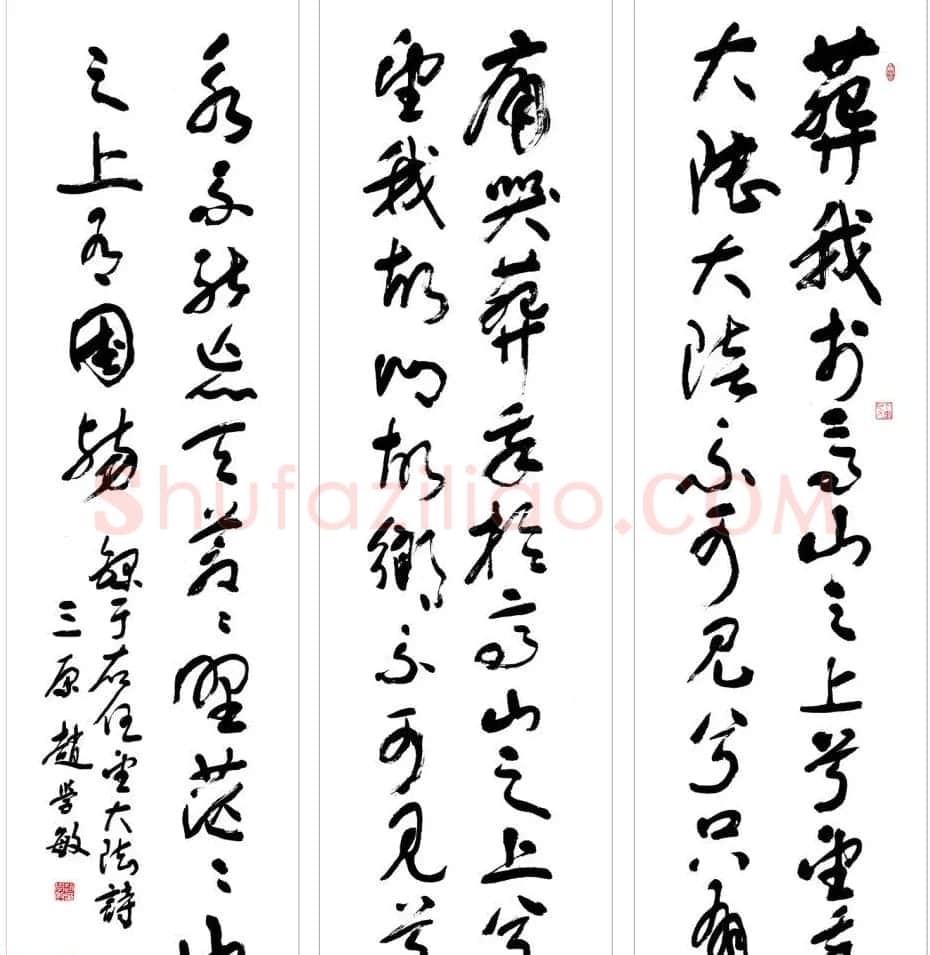 葬我於高山之上兮望
大陸大陸不可見兮只有
痛哭葬我於高山之上兮
望我故鄉故鄉不可見兮
永不能忘天蒼々野茫々
之上有國殤
錄于右任望大陸詩
三原趙学敏
Shufaziliao.COM